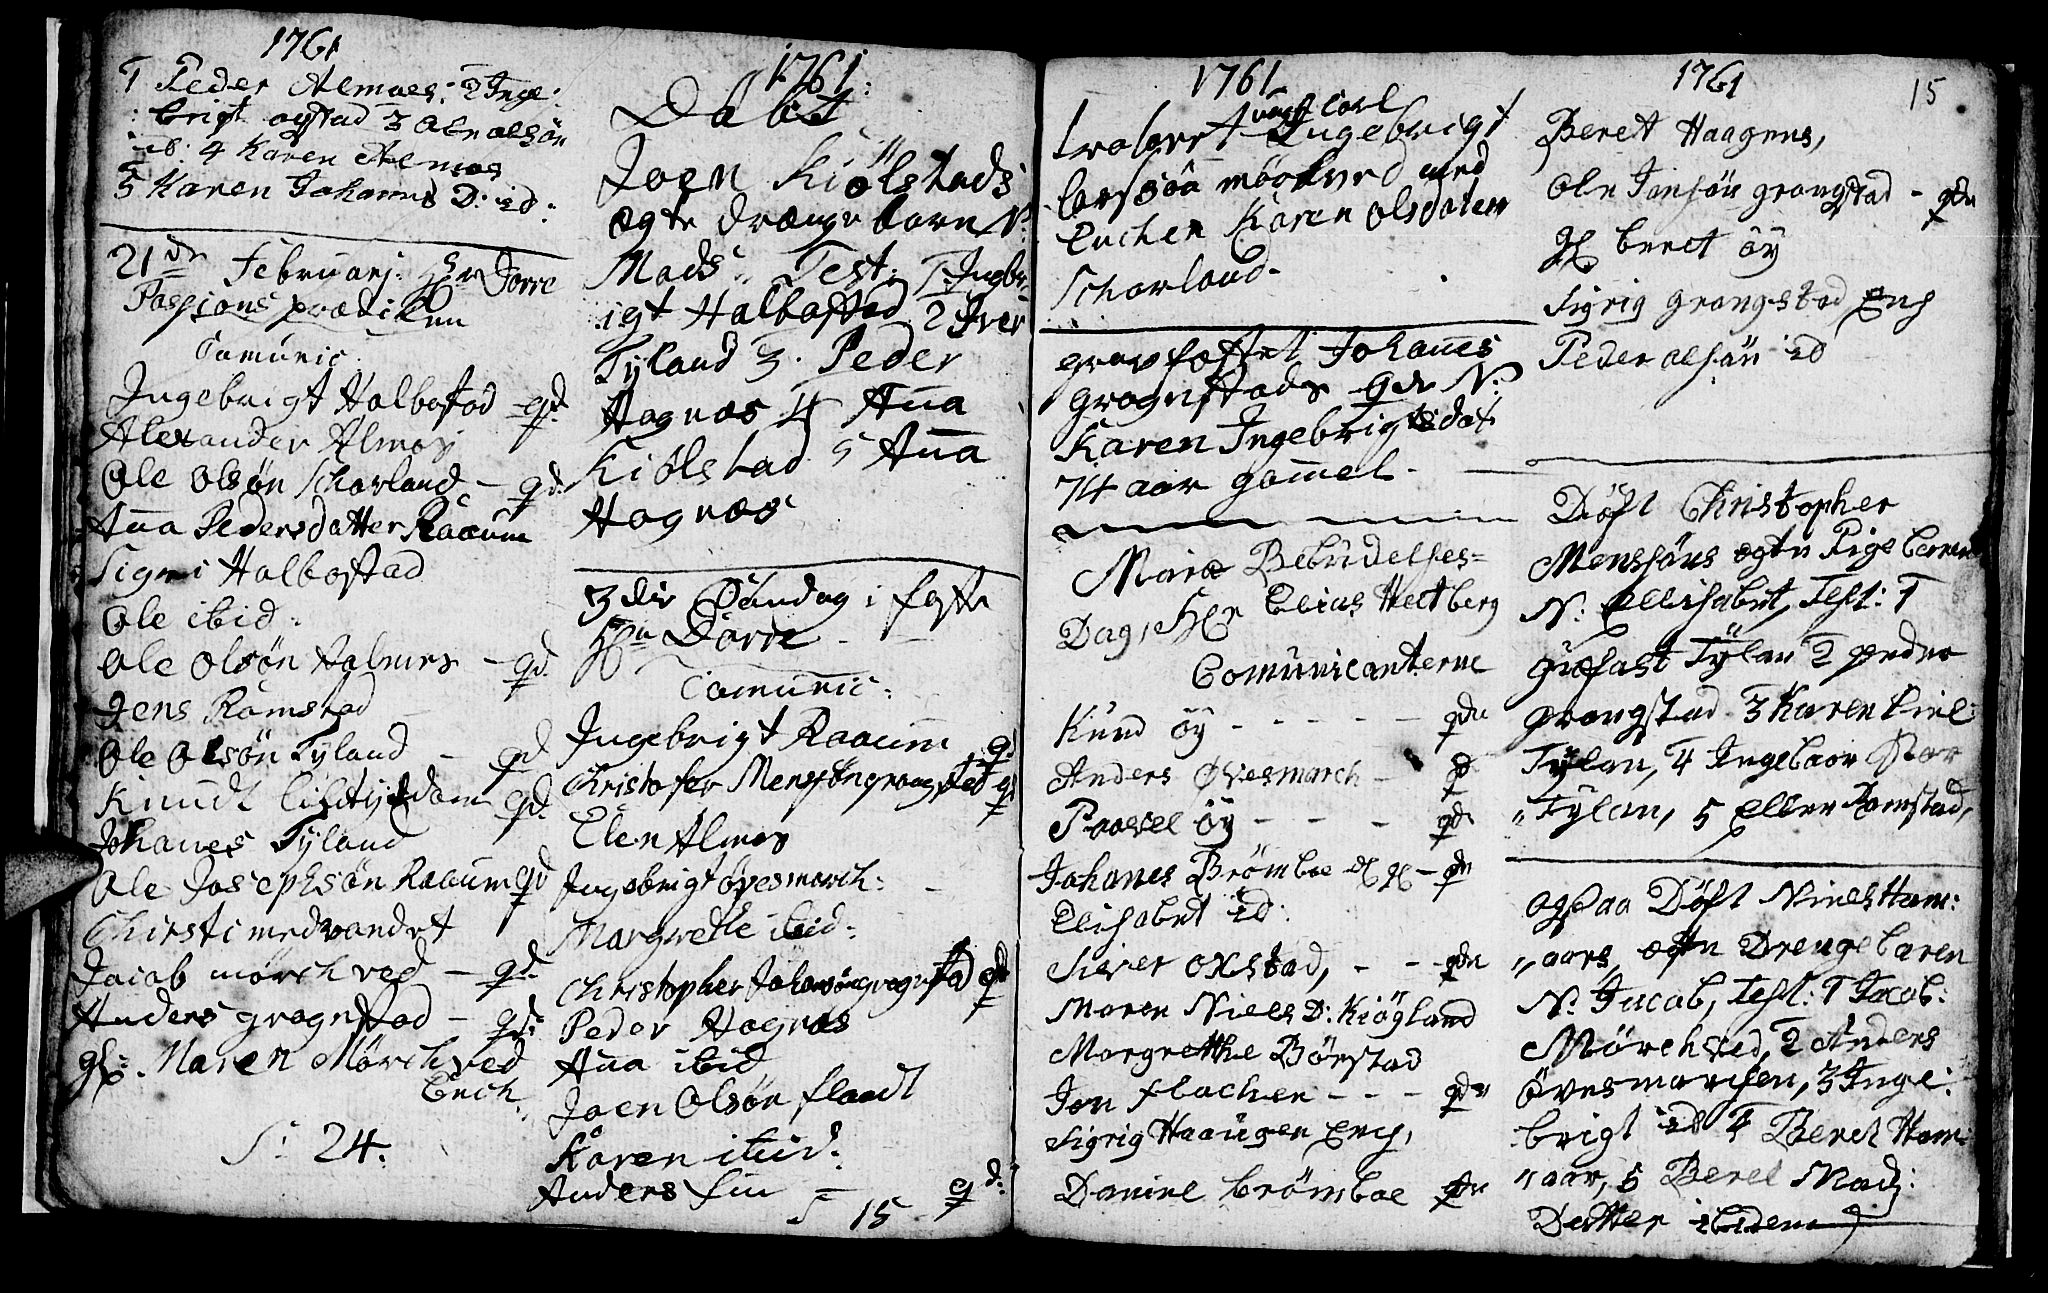 1761
1 Peder Almaes: 2 Inge:
: brigt aystad 3 Ole olsön
ib: 4 Karen Almas
5 Karen Johanns D: id:
21de Februarj: Hr Dorre
Passions prædiken
Comunic:
Ingebrigt Halbostad qd.
Alexander Almoy
Ole Olsön Schorland – qd.
Anna Pedersdatter Raaum
Signi Halbostad
Ole ibid:
Ole Olsön Halmes – qd.
Jens Römstad
Ole Olsön Tyland – qd
Knudt
Johanes Tyland qd.
Ole Josephsön Raaum qd
Christi medvandet
Jacob mörchved – qd.
Anders grognstad – qd:
Maren Mörchved
Ench.
S: 24.
1761:
Döbt
Joen Kiölstads
ægte drænge barn N:
Mads, Test: 1 Ingebr:
:igt Halbostad 2 Iver
Tyland 3. Peder
Hognæs 4 Anna
Kiölstad 5 Anna
Hognæs
3die Söndag i faste
Hr Dorre
Comunic:
Ingebrigt Raaum qd
Christofer Mensön grongstad qd
Elen Almas
Ingebrigt övesmarch:
Margrethe ibid:
Christopher Johansön grognstad qd
Peder Hognæs
Anna ibid
Joen Olsön flaadt
Karen ibid:
Anders fin – qd:
S 15
1761
trolovet ungt Carl Ingebrigt
larssön mörkved med
Enchen Karen olsdater
Schorland.
gravfæstet Johanes
grognstads qde N:
Karen Ingebrigtsdat
74 aar gamel.
Mariæ Bebudelses=
Dag, Her Elias Heltberg
Comunicanterne
Knud öy – – – – – qde
Anders Övesmarch – qd
Paavel öy – – – qde
Johanes Brömboe – qde
Elisabet id:
Siver oxstad, – – qde
Maren Niels D: Kiögland
Margrethe Börstad
Jon flachen – – – qde
Sigrig Haaugen Ench,
Daniel brömboe qde
1761
15
Beret Haagens,
Ole Jensön grongstad – qde
beret öy
Sigrig grongstad, Ench
Peder olsön id
Döft Christopher
Mensöns ægte Pige barn
N: Ellisabet, Test: 1
Tÿlan 2 peder
grongstad 3 Karen
Tÿlan, 4 Ingebaar
„Tÿlan, 5 Ellen Romstad,
ogsaa Döft Niels Ham:
„aars, ægte Drenge baren
N: Jacob, Test: 1 Jacob:
Mörchved, 2 Anders
Övesmarchen, 3 Inge:
brigt id 4 Beret Ham:
„aar, 5 Beret Mads:
Datter ibidem